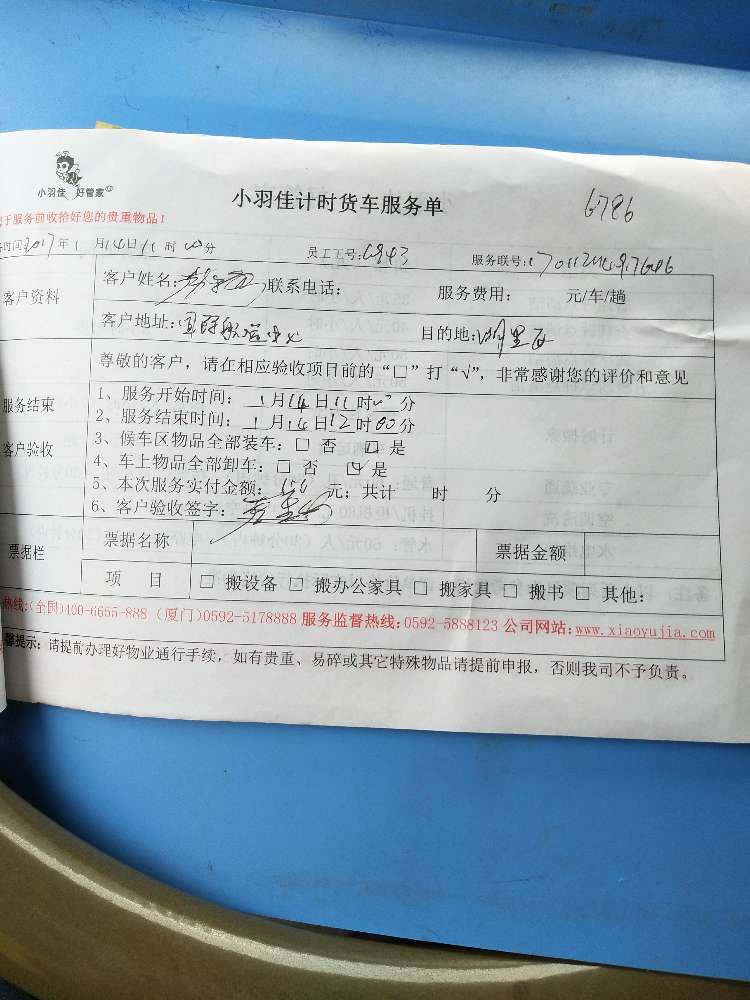 小羽佳 好管家
小羽佳计时货车服务单
6786
于服务前收拾好您的贵重物品！
时间2017年1月14日11时00分 员工工号:6843 服务联号:
客户资料
客户姓名: 联系电话: 服务费用: 元/车/趟
客户地址: 国际航运中心 目的地: 湖里区
尊敬的客户，请在相应验收项目前的“□”打“√”，非常感谢您的评价和意见
服务结束
客户验收
1、服务开始时间: 1月14日11时00分
2、服务结束时间: 1月14日12时00分
3、候车区物品全部装车: □ 否 □ 是
4、车上物品全部卸车: □ 否 ☑ 是
5、本次服务实付金额: 150元; 共计 时 分
6、客户验收签字:
票据栏
票据名称 票据金额
项 目 □ 搬设备 □ 搬办公家具 □ 搬家具 □ 搬书 □ 其他:
热线:(全国)400-6655-888 (厦门)0592-5178888 服务监督热线:0592-5888123 公司网站:www.xiaoyujia.com
馨提示: 请提前办理好物业通行手续，如有贵重、易碎或其它特殊物品请提前申报，否则我司不予负责。